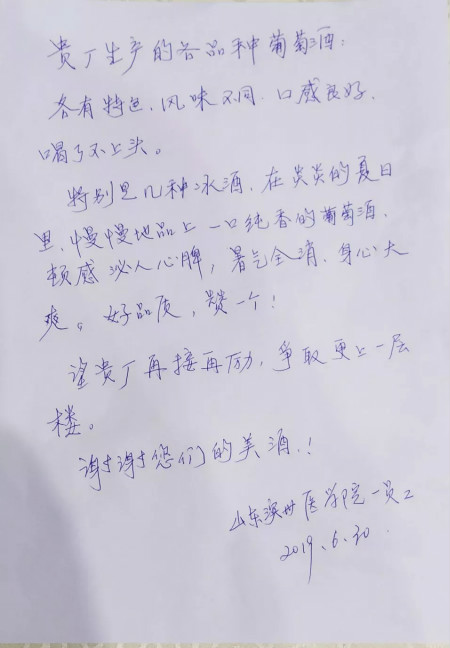 贵厂生产的各品种葡萄酒:
各有特色,风味不同.口感良好,
喝了不上头。
特别是几种冰酒,在炎炎的夏日
里,慢慢地品上一口纯香的葡萄酒,
顿感沁人心脾,暑气全消,身心大
爽。好品质,赞一个!
望贵厂再接再励,争取更上一层
楼。
谢谢您们的美酒!
山东滨州医学院一员工
2019.6.30